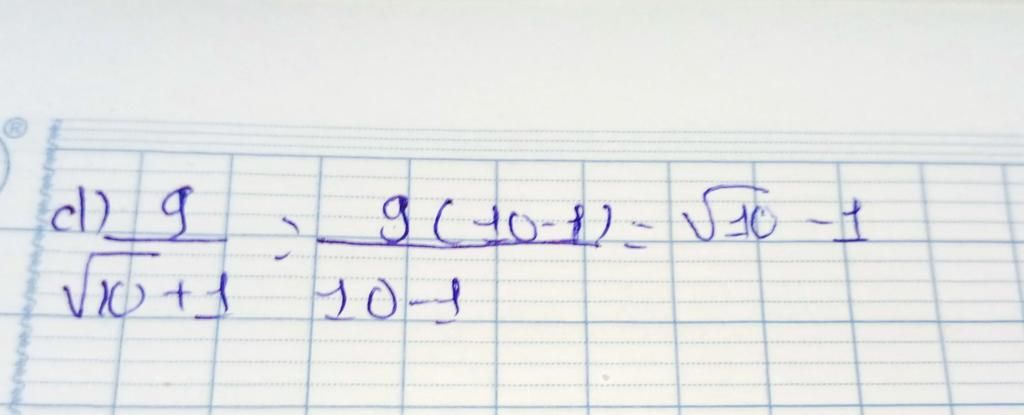 ®
d) 9/(√10+1) = 9(10-1)/(10-1) = √10-1